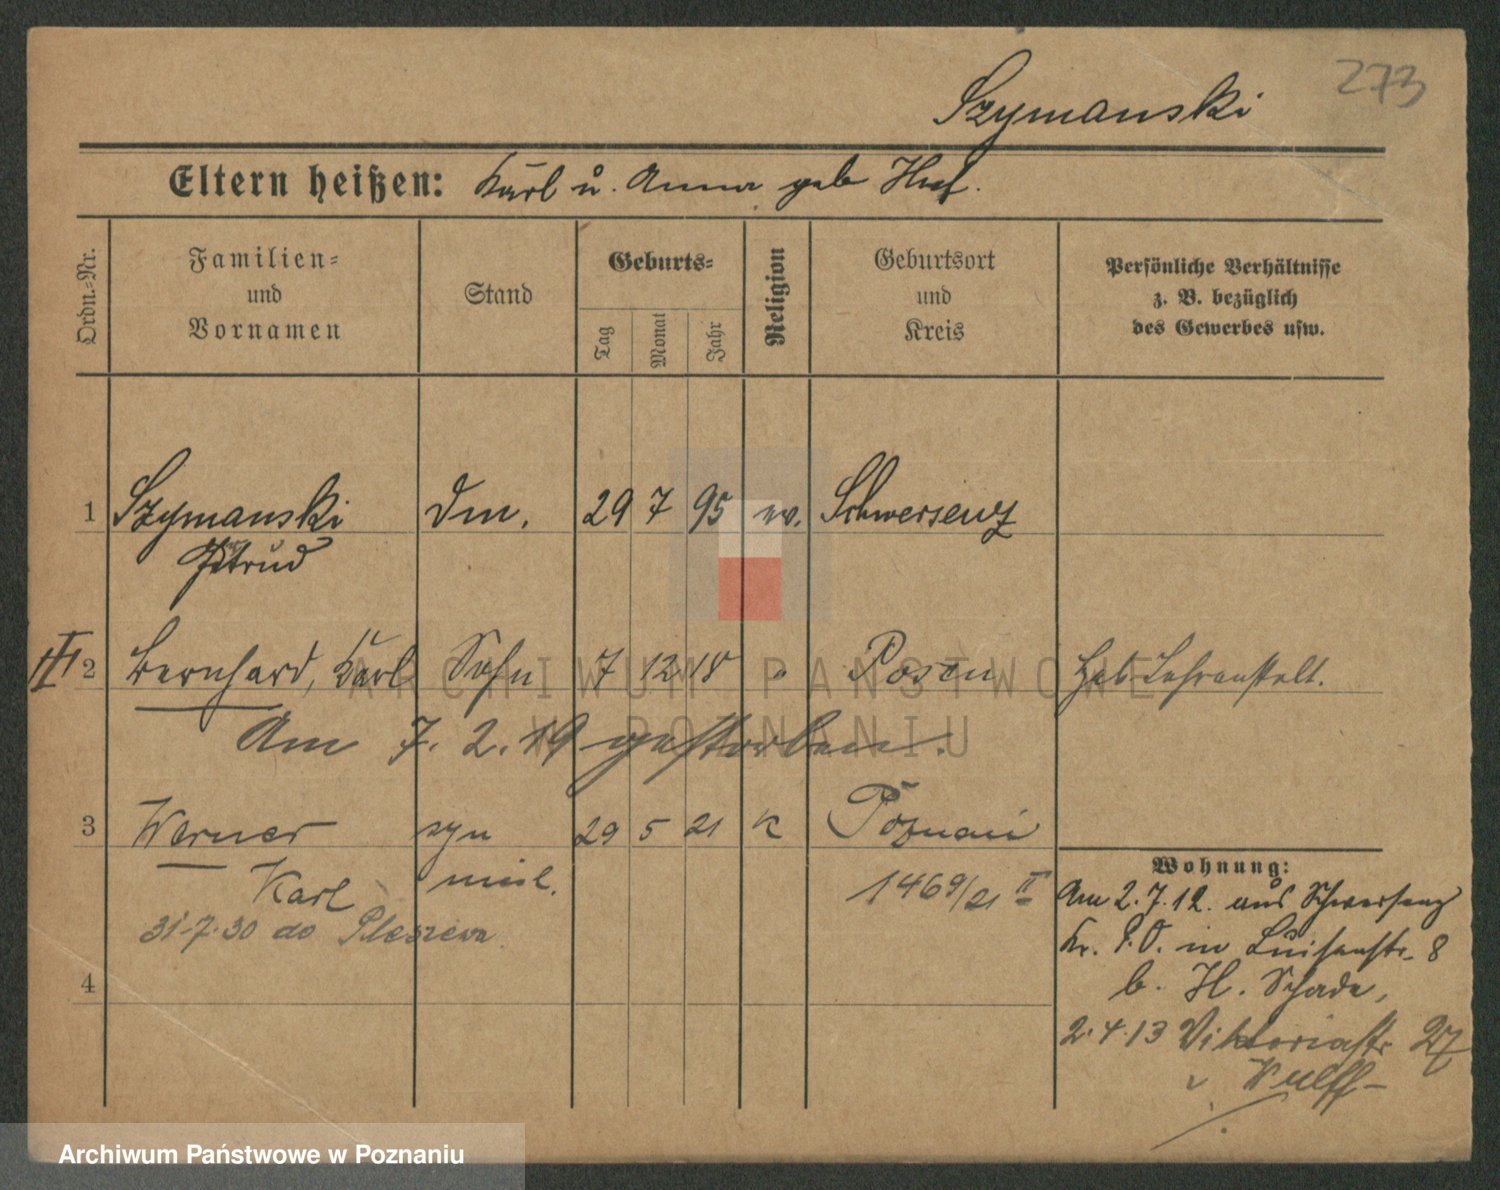 273
Szymanski
Eltern heißen: Karl u. Anna geb
Ordn.-Nr.
Familien-
und
Vornamen
Stand
Geburts-
Tag
Monat
Jahr
Religion
Geburtsort
und
Kreis
Persönliche Verhältnisse
z. B. bezüglich
des Gewerbes usw.
1 Szymanski 29 7 95 ev. Schwersenz
2 Bernhard, Karl Sohn 7 12 18 " Posen Heb. Lehranstalt.
Am 7. 2. 19 gestorben.
3 Werner syn 29 5 21 K Poznań
Karl nieśl. 1469/21 II
31-7-30 do Pleszewa
4
Wohnung:
Am 2. 7. 12. aus Schwersenz
Kr. P. O. in Luisenstr. 8
b. H. Schade,
2. 4. 13 Viktoriastr 27
Wulff
ARCHIWUM PAŃSTWOWE
W POZNANIU
Archiwum Państwowe w Poznaniu